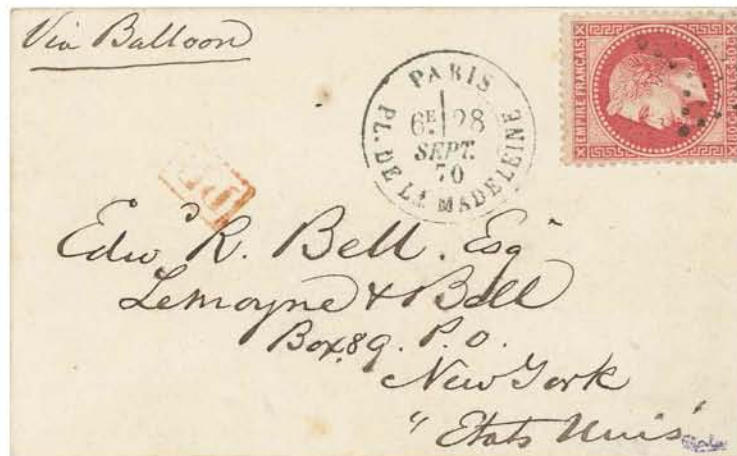 Via Balloon
PARIS
6E 28
SEPT.
70
PL. DE LA MADELEINE
EMPIRE FRANÇAIS
80 C POSTES 80 C
P.D.
Edw R. Bell. Esq
Lemoyne & Bell
Box 89. P.O.
New York
"Etats Unis"